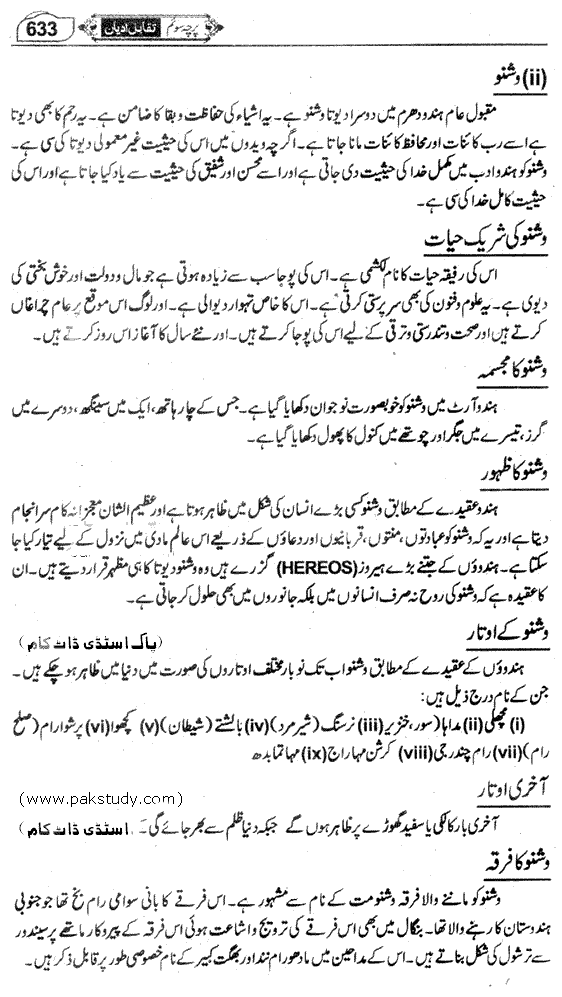 633 تقابل ادیان پرچہ سوئم
(ii) وشنو
مقبول عام ہندو دھرم میں دوسرا دیوتا وشنو ہے۔ یہ اشیاء کی حفاظت و بقا کا ضامن ہے۔ یہ رحم کا بھی دیوتا
ہے اسے رب کائنات اور محافظ کائنات مانا جاتا ہے۔ اگرچہ ویدوں میں اس کی حیثیت غیر معمولی دیوتا کی سی ہے۔
وشنو کو ہندو ادب میں مکمل خدا کی حیثیت دی جاتی ہے اور اسے محسن اور شفیق کی حیثیت سے یاد کیا جاتا ہے اور اس کی
حیثیت کامل خدا کی سی ہے۔
وشنو کی شریک حیات
اس کی رفیقہ حیات کا نام لکشمی ہے۔ اس کی پوجا سب سے زیادہ ہوتی ہے جو مال و دولت اور خوش بختی کی
دیوی ہے۔ یہ علوم و فنون کی بھی سرپرستی کرتی ہے۔ اس کا خاص تہوار دیوالی ہے۔ اور لوگ اس موقع پر عام چراغاں
کرتے ہیں اور صحت و تندرستی و ترقی کے لیے اس کی پوجا کرتے ہیں۔ اور نئے سال کا آغاز اس روز کرتے ہیں۔
وشنو کا مجسمہ
ہندو آرٹ میں وشنو کو خوبصورت نوجوان دکھایا گیا ہے۔ جس کے چار ہاتھ، ایک میں سینگھ، دوسرے میں
گرز، تیسرے میں جگر اور چوتھے میں کنول کا پھول دکھایا گیا ہے۔
وشنو کا ظہور
ہندو عقیدے کے مطابق وشنو کسی بڑے انسان کی شکل میں ظاہر ہوتا ہے اور عظیم الشان معجزانہ کام سرانجام
دیتا ہے اور یہ کہ وشنو کو عبادتوں، منتوں، قربانیوں اور دعاؤں کے ذریعے اس عالم مادی میں نزول کے لیے تیار کیا جا
سکتا ہے۔ ہندوؤں کے جتنے بڑے ہیروز (HEREOS) گزرے ہیں وہ وشنو دیوتا کا ہی مظہر قرار دیتے ہیں۔ ان
کا عقیدہ ہے کہ وشنو کی روح نہ صرف انسانوں میں بلکہ جانوروں میں بھی حلول کر جاتی ہے۔
وشنو کے اوتار (پاک اسٹڈی ڈاٹ کام)
ہندوؤں کے عقیدے کے مطابق وشنو اب تک نو بار مختلف اوتاروں کی صورت میں دنیا میں ظاہر ہو چکے ہیں۔
جن کے نام درج ذیل ہیں:
(i) مچھلی (ii) مداہا (سور، خنزیر) (iii) نرسنگ (شیر مرد) (iv) بالشتے (شیطان) (v) کچھوا (vi) پرشو رام (صلح
رام) (vii) رام چندر جی (viii) کرشن مہاراج (ix) مہاتما بدھ
آخری اوتار (www.pakstudy.com)
آخری بار کالکی یا سفید گھوڑے پر ظاہر ہوں گے جبکہ دنیا ظلم سے بھر جائے گی۔ اسٹڈی ڈاٹ کام)
وشنو کا فرقہ
وشنو کو ماننے والا فرقہ وشنو مت کے نام سے مشہور ہے۔ اس فرقے کا بانی سوامی رام بخ تھا جو جنوبی
ہندوستان کا رہنے والا تھا۔ بنگال میں بھی اس فرقے کی ترویج و اشاعت ہوئی اس فرقہ کے پیروکار ماتھے پر سیندور
سے ترشول کی شکل بناتے ہیں۔ اس کے مداحین میں مادھو رام نند اور بھگت کبیر کے نام خصوصی طور پر قابل ذکر ہیں۔